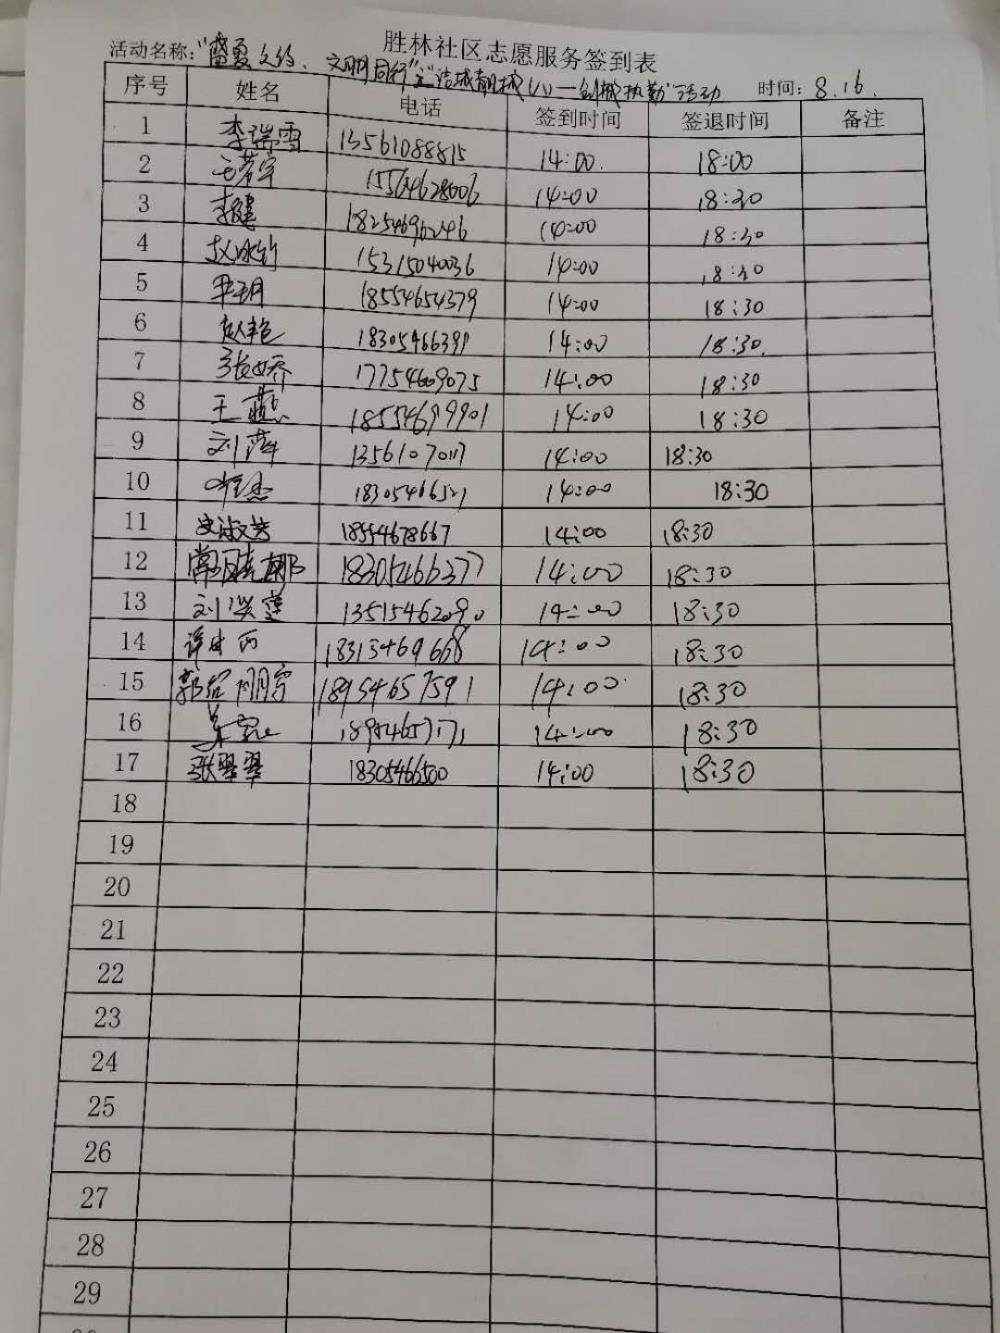 胜林社区志愿服务签到表
活动名称："盛夏之约、文明同行" 时间：8.16.
序号 姓名 电话 签到时间 签退时间 备注
1 李瑞雪 13561088815 14:00. 18:00
2 毛芳宇 15564628006 14:00 18:30
3 李健 18254696246 14:00 18:30
4 赵冰竹 15315040036 14:00 18:30
5 18554654379 14:00 18:30
6 赵艳 18305466391 14:00 18:30.
7 张娇 17754609075 14:00 18:30
8 王燕 18554699901 14:00 18:30
9 刘萍 13561070117 14:00 18:30
10 18305466521 14:00 18:30
11 18554678667 14:00 18:30
12 常晓娜 18305466377 14:00 18:30
13 刘洪莲 13515462090 14:00 18:30
14 18315469668 14:00 18:30
15 18954657591 14:00 18:30
16 18954657171 14:00 18:30
17 张翠翠 18305466500 14:00 18:30
18
19
20
21
22
23
24
25
26
27
28
29